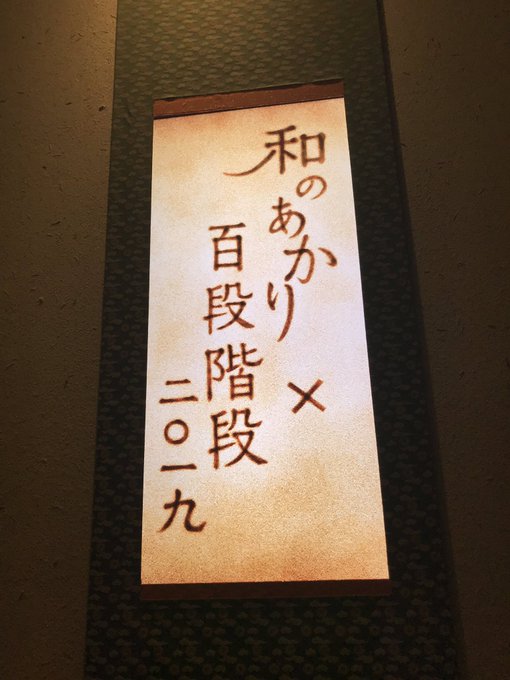 和のあかり×
百段階段
二〇一九